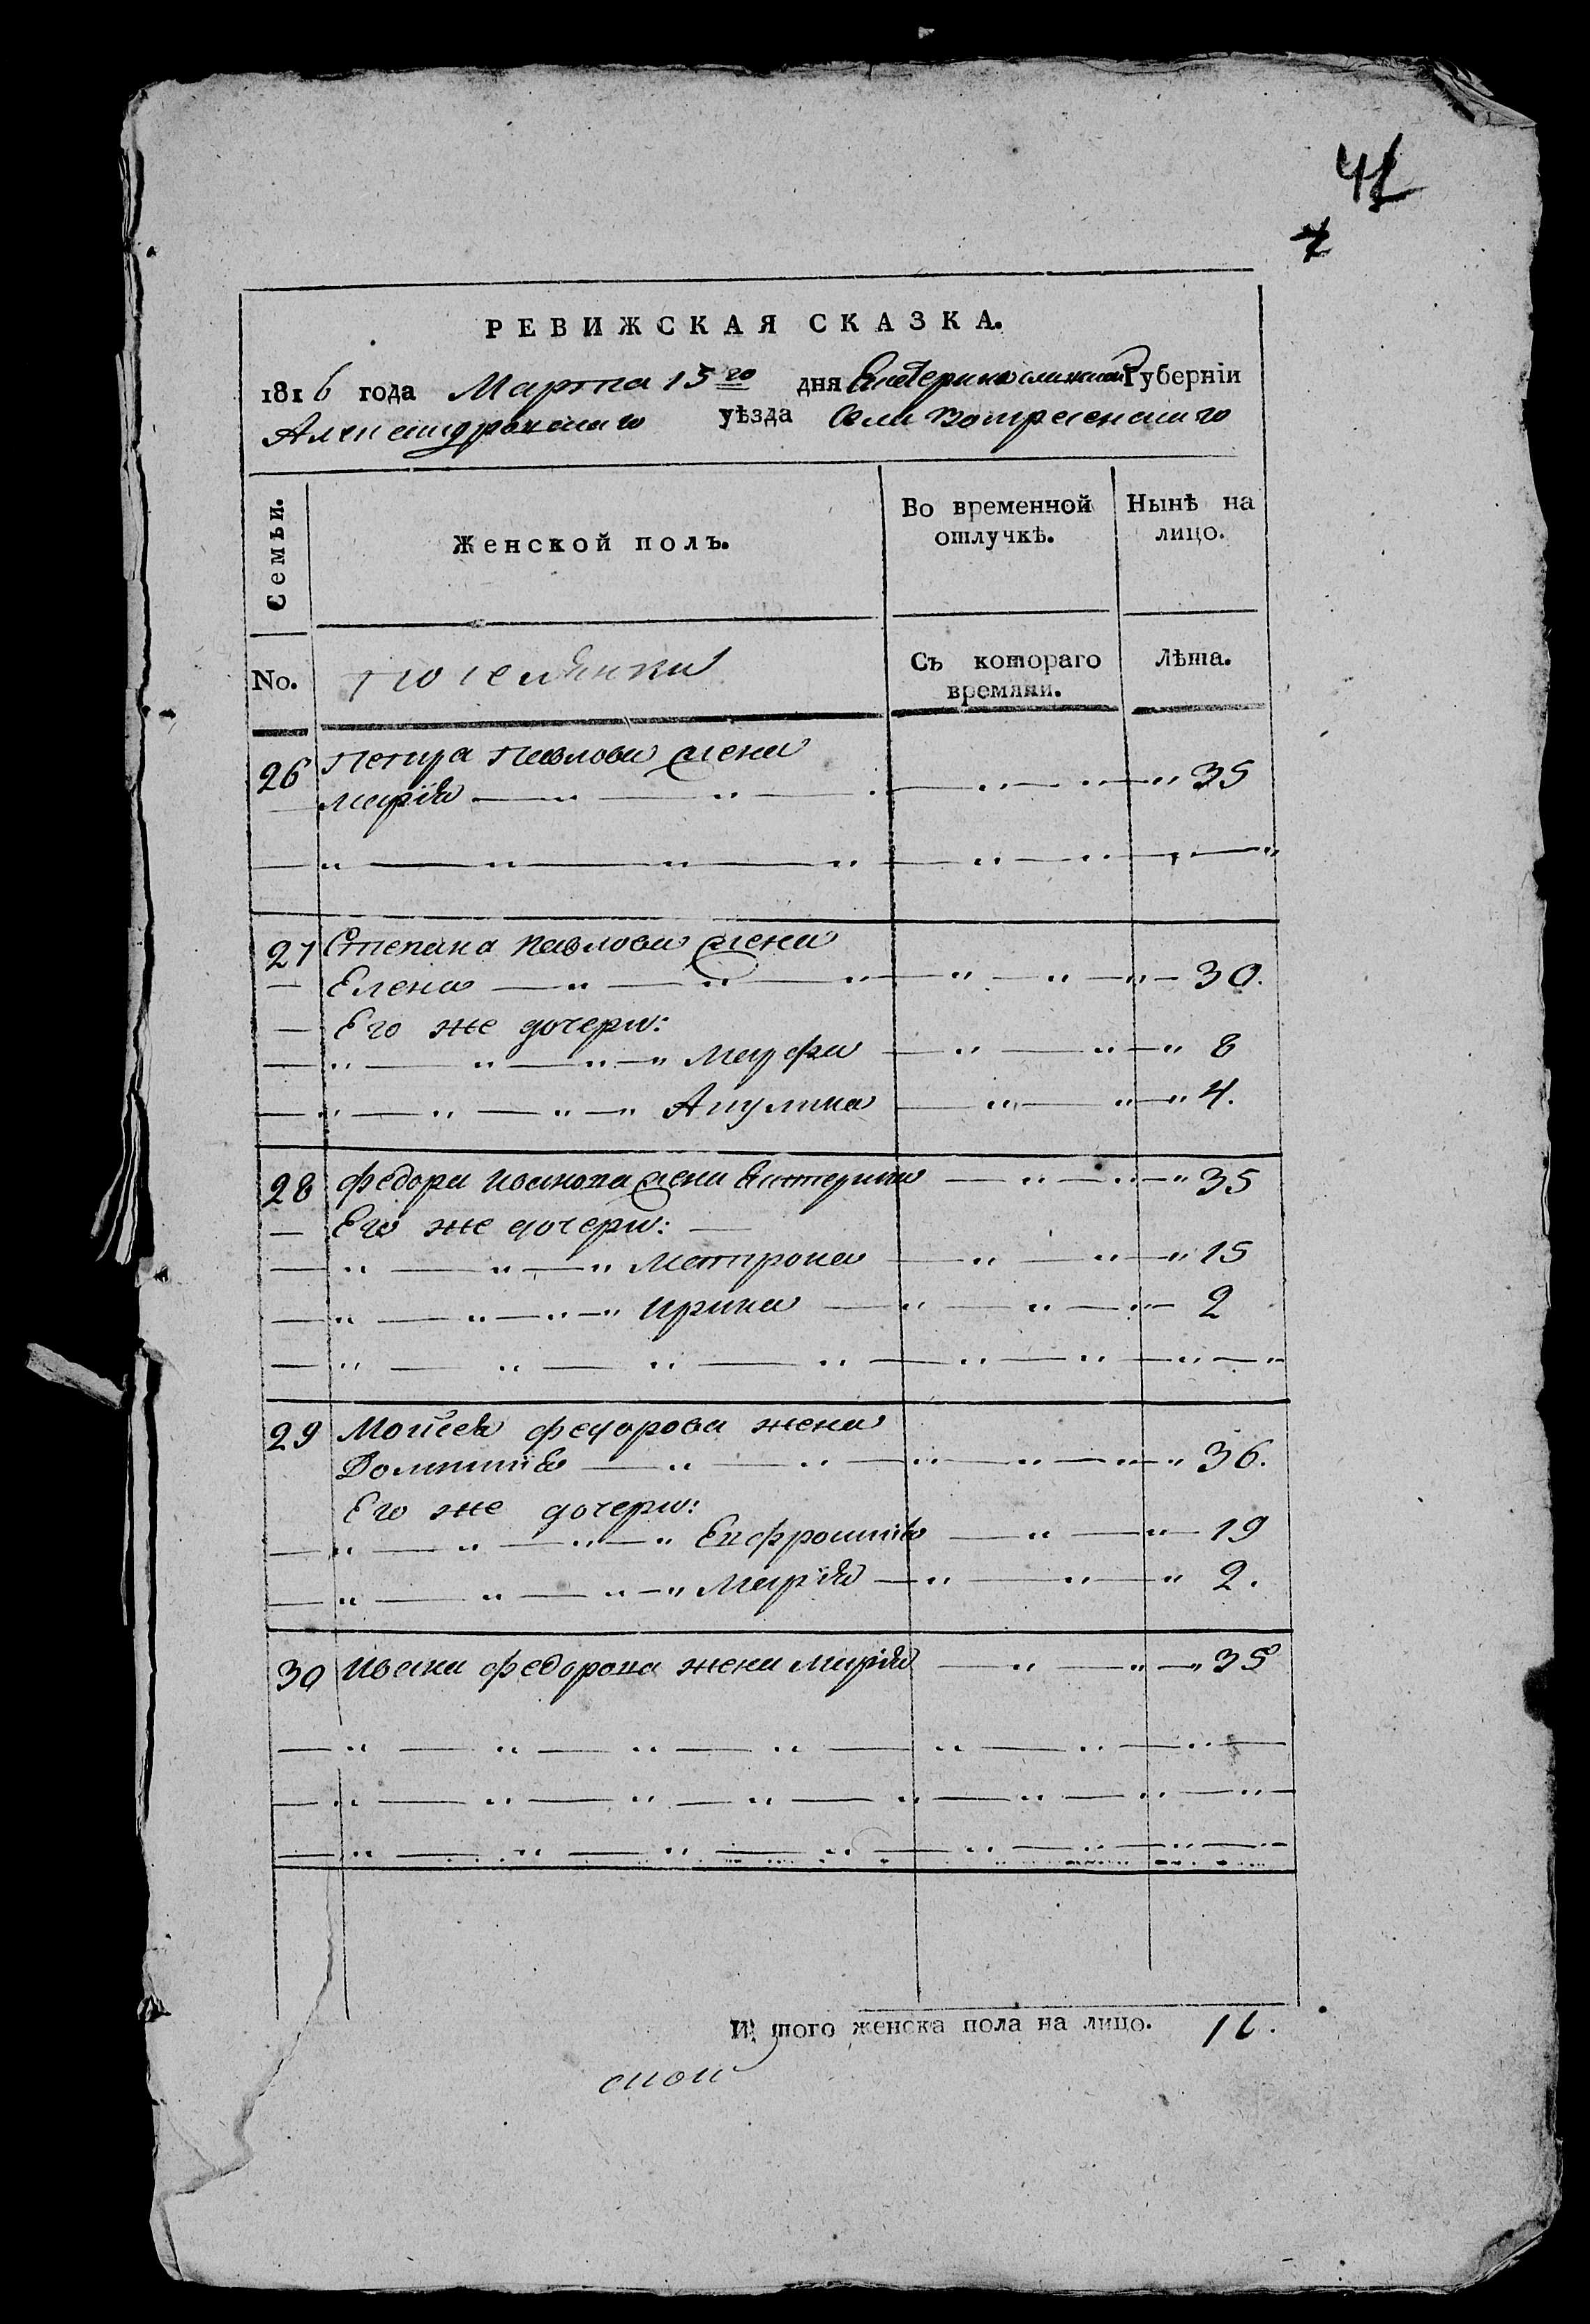 41
РЕВИЖСКАЯ СКАЗКА.
1816 года Марта 15го дня Екатеринославской Губерніи
Александровскаго уѣзда Села Вознесенскаго
Семьи.
Женской полъ.
Во временной отлучкѣ.
Нынѣ на лицо.
No.
Поселянки
Съ котораго времяни.
Лѣта.
26 Петра Павлова жена
Марія 35
27 Степана Павлова жена
Елена 30.
Его же дочери:
Марфа 8
Акулина 4.
28 Федора Иванова жена Екатерина 35
Его же дочери:
Матрона 15
Ирина 2
29 Моисея Федорова жена
Домникія 36.
Его же дочери:
Евфросинія 19
Марія 2.
30 Ивана Федорова жена Марія 35
И того женска пола на лицо. 11.